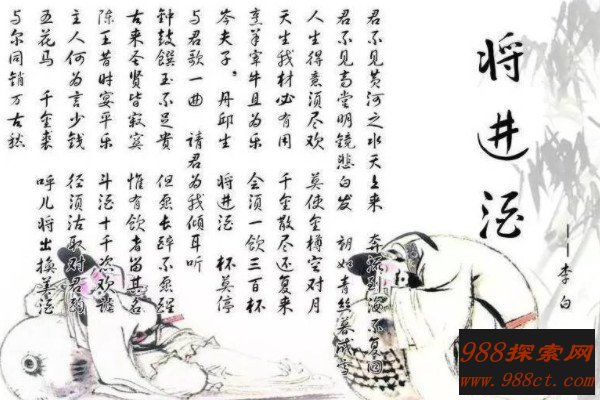 将进酒
——李白
君不见黄河之水天上来 奔流到海不复回
君不见高堂明镜悲白发 朝如青丝暮成雪
人生得意须尽欢 莫使金樽空对月
天生我材必有用 千金散尽还复来
烹羊宰牛且为乐 会须一饮三百杯
岑夫子，丹邱生 将进酒 杯莫停
与君歌一曲 请君为我倾耳听
钟鼓馔玉不足贵 但愿长醉不愿醒
古来圣贤皆寂寞 惟有饮者留其名
陈王昔时宴平乐 斗酒十千恣欢谑
主人何为言少钱 径须沽取对君酌
五花马 千金裘 呼儿将出换美酒
与尔同销万古愁
988探索网
www.988ct.com